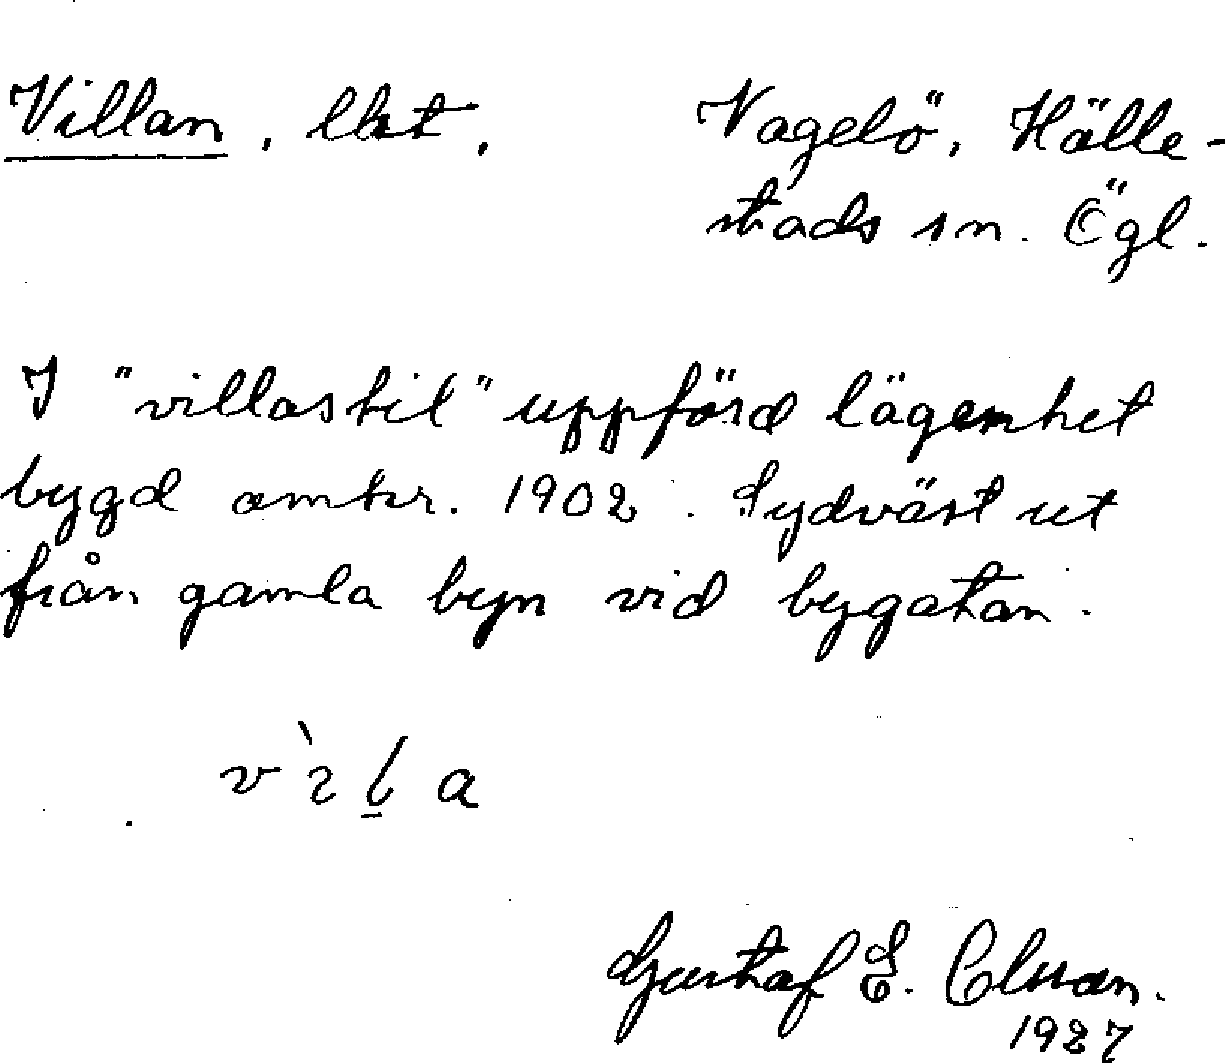 Villan, lht, Vagelö, Hälle-
stads sn. Ögl.
I "villastil" uppförd lägenhet
bygd omkr. 1902. Sydväst ut
från gamla byn vid bygatan.
Gustaf E.
1927